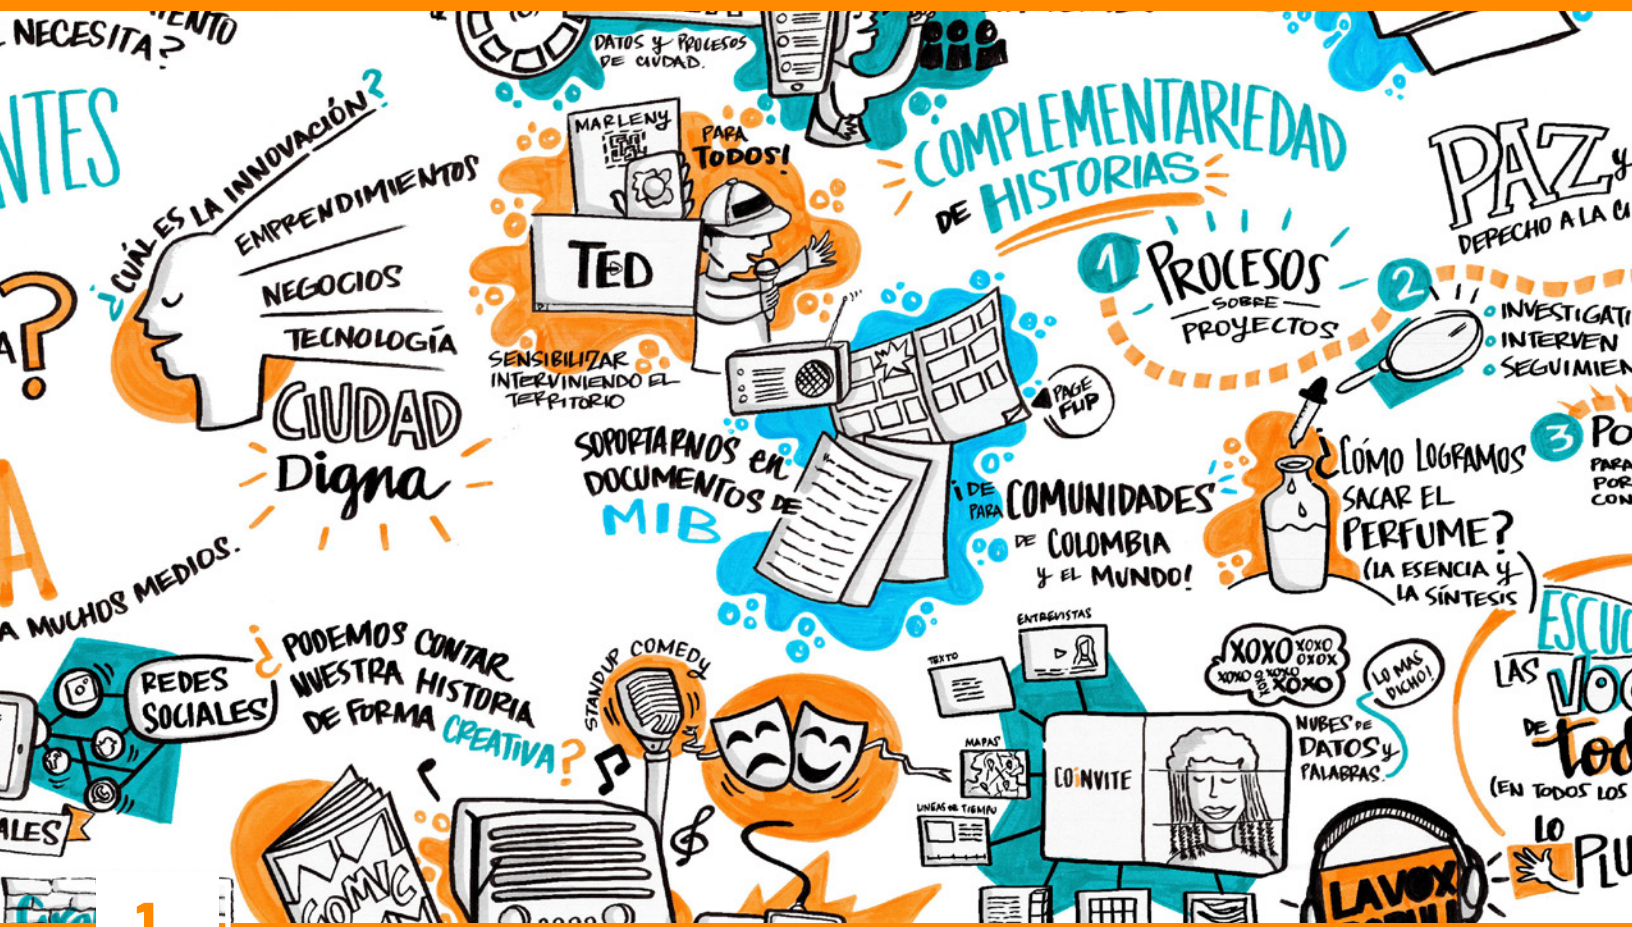 NECESITA?
NTES
¿CUÁL ES LA INNOVACIÓN?
EMPRENDIMIENTOS
NEGOCIOS
TECNOLOGÍA
CIUDAD
Digna
A MUCHOS MEDIOS.
DATOS y PROCESOS
DE CIUDAD.
MARLENY
PARA
TODOS!
TED
SENSIBILIZAR
INTERVINIENDO EL
TERRITORIO
SOPORTARNOS en
DOCUMENTOS DE
MIB
PAGE
FLIP
COMPLEMENTARIEDAD
DE HISTORIAS
1
PROCESOS
SOBRE
PROYECTOS
2
INVESTIGATI
INTERVEN
SEGUIMIEN
PAZ y
DERECHO A LA CI
3
PO
PARA
POR
CON
¡DE
PARA COMUNIDADES
DE COLOMBIA
y EL MUNDO!
¿CÓMO LOGRAMOS
SACAR EL
PERFUME?
(LA ESENCIA y
LA SÍNTESIS)
REDES
SOCIALES
ALES
¿PODEMOS CONTAR
NUESTRA HISTORIA
DE FORMA CREATIVA?
STANDUP COMEDY
COMIC
ENTREVISTAS
TEXTO
MAPAS
LINEAS DE TIEMPO
COINVITE
XOXO XOXO
OXOX
XOXO XOXO
XOXO
LO MAS
DICHO!
NUBES DE
DATOS y
PALABRAS.
ESCUC
LAS VOC
DE tod
(EN TODOS LOS
LO
PLU
LA VOX
1